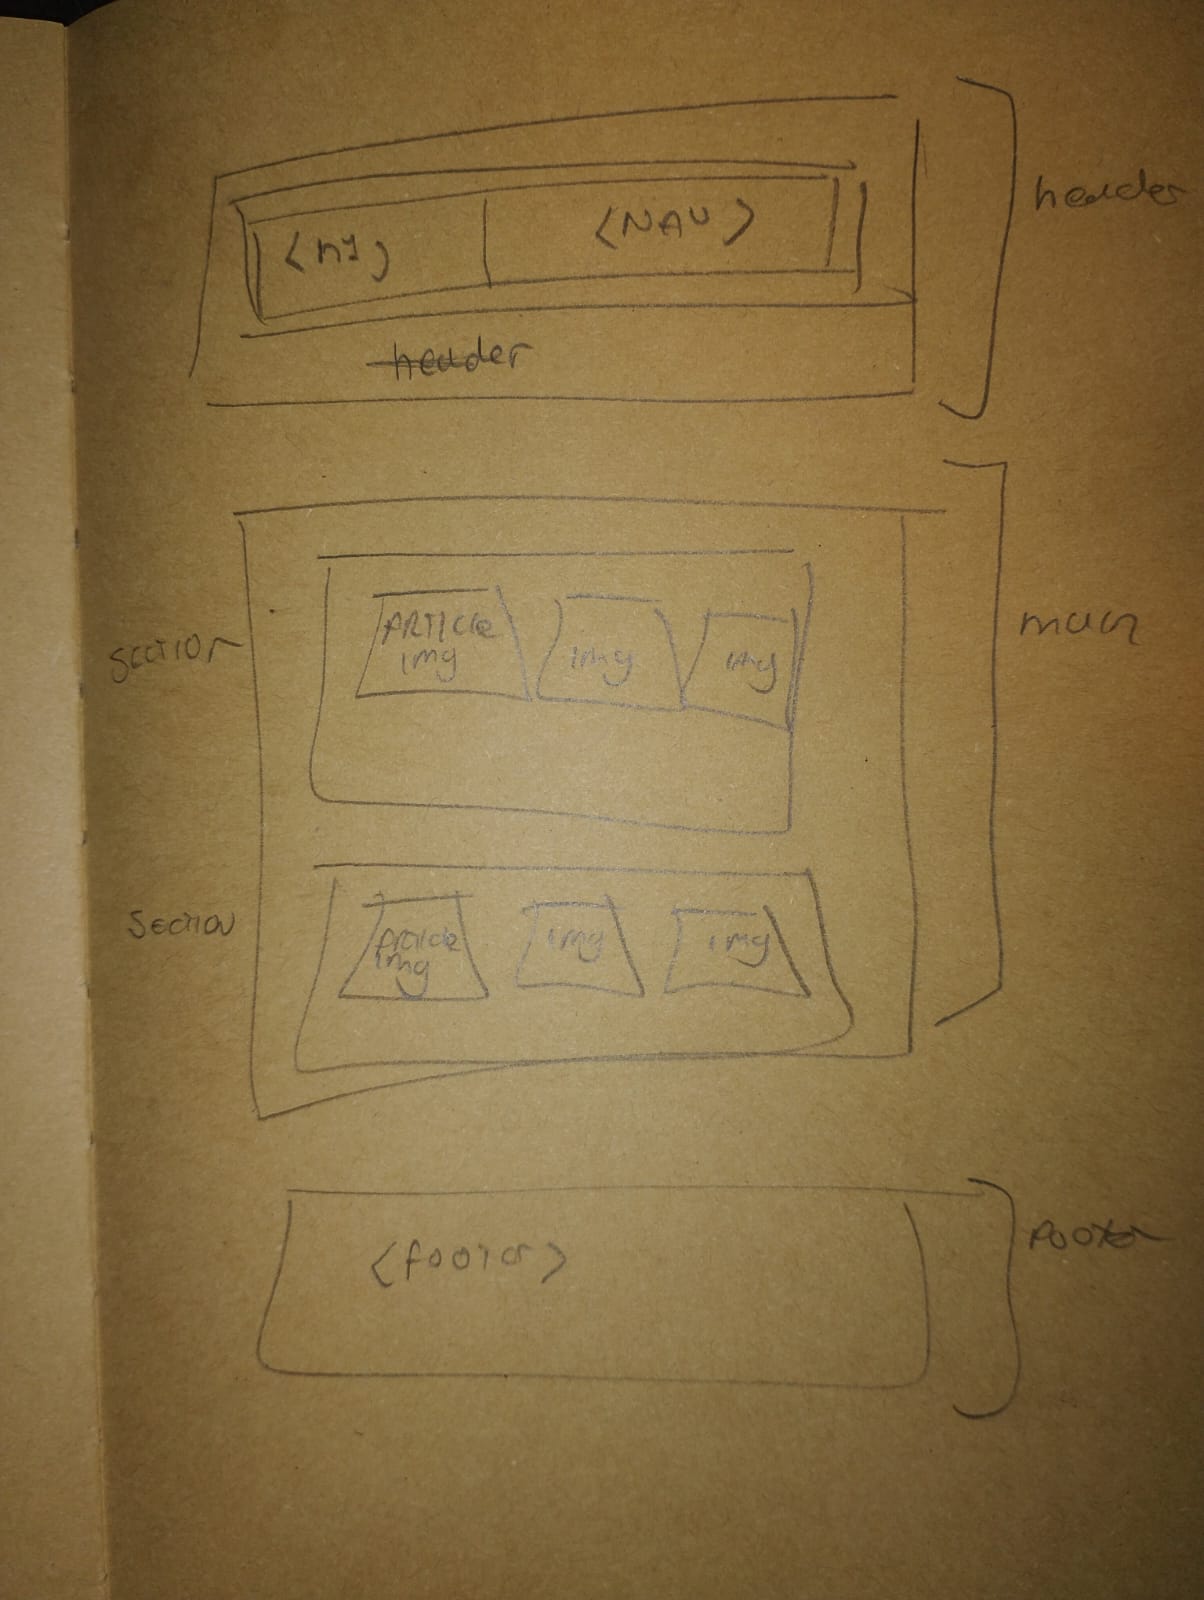 <h1>
<NAV>
header
header
main
section
ARTICLE
img
img
img
SECTION
Article
img
img
img
<footer>
footer